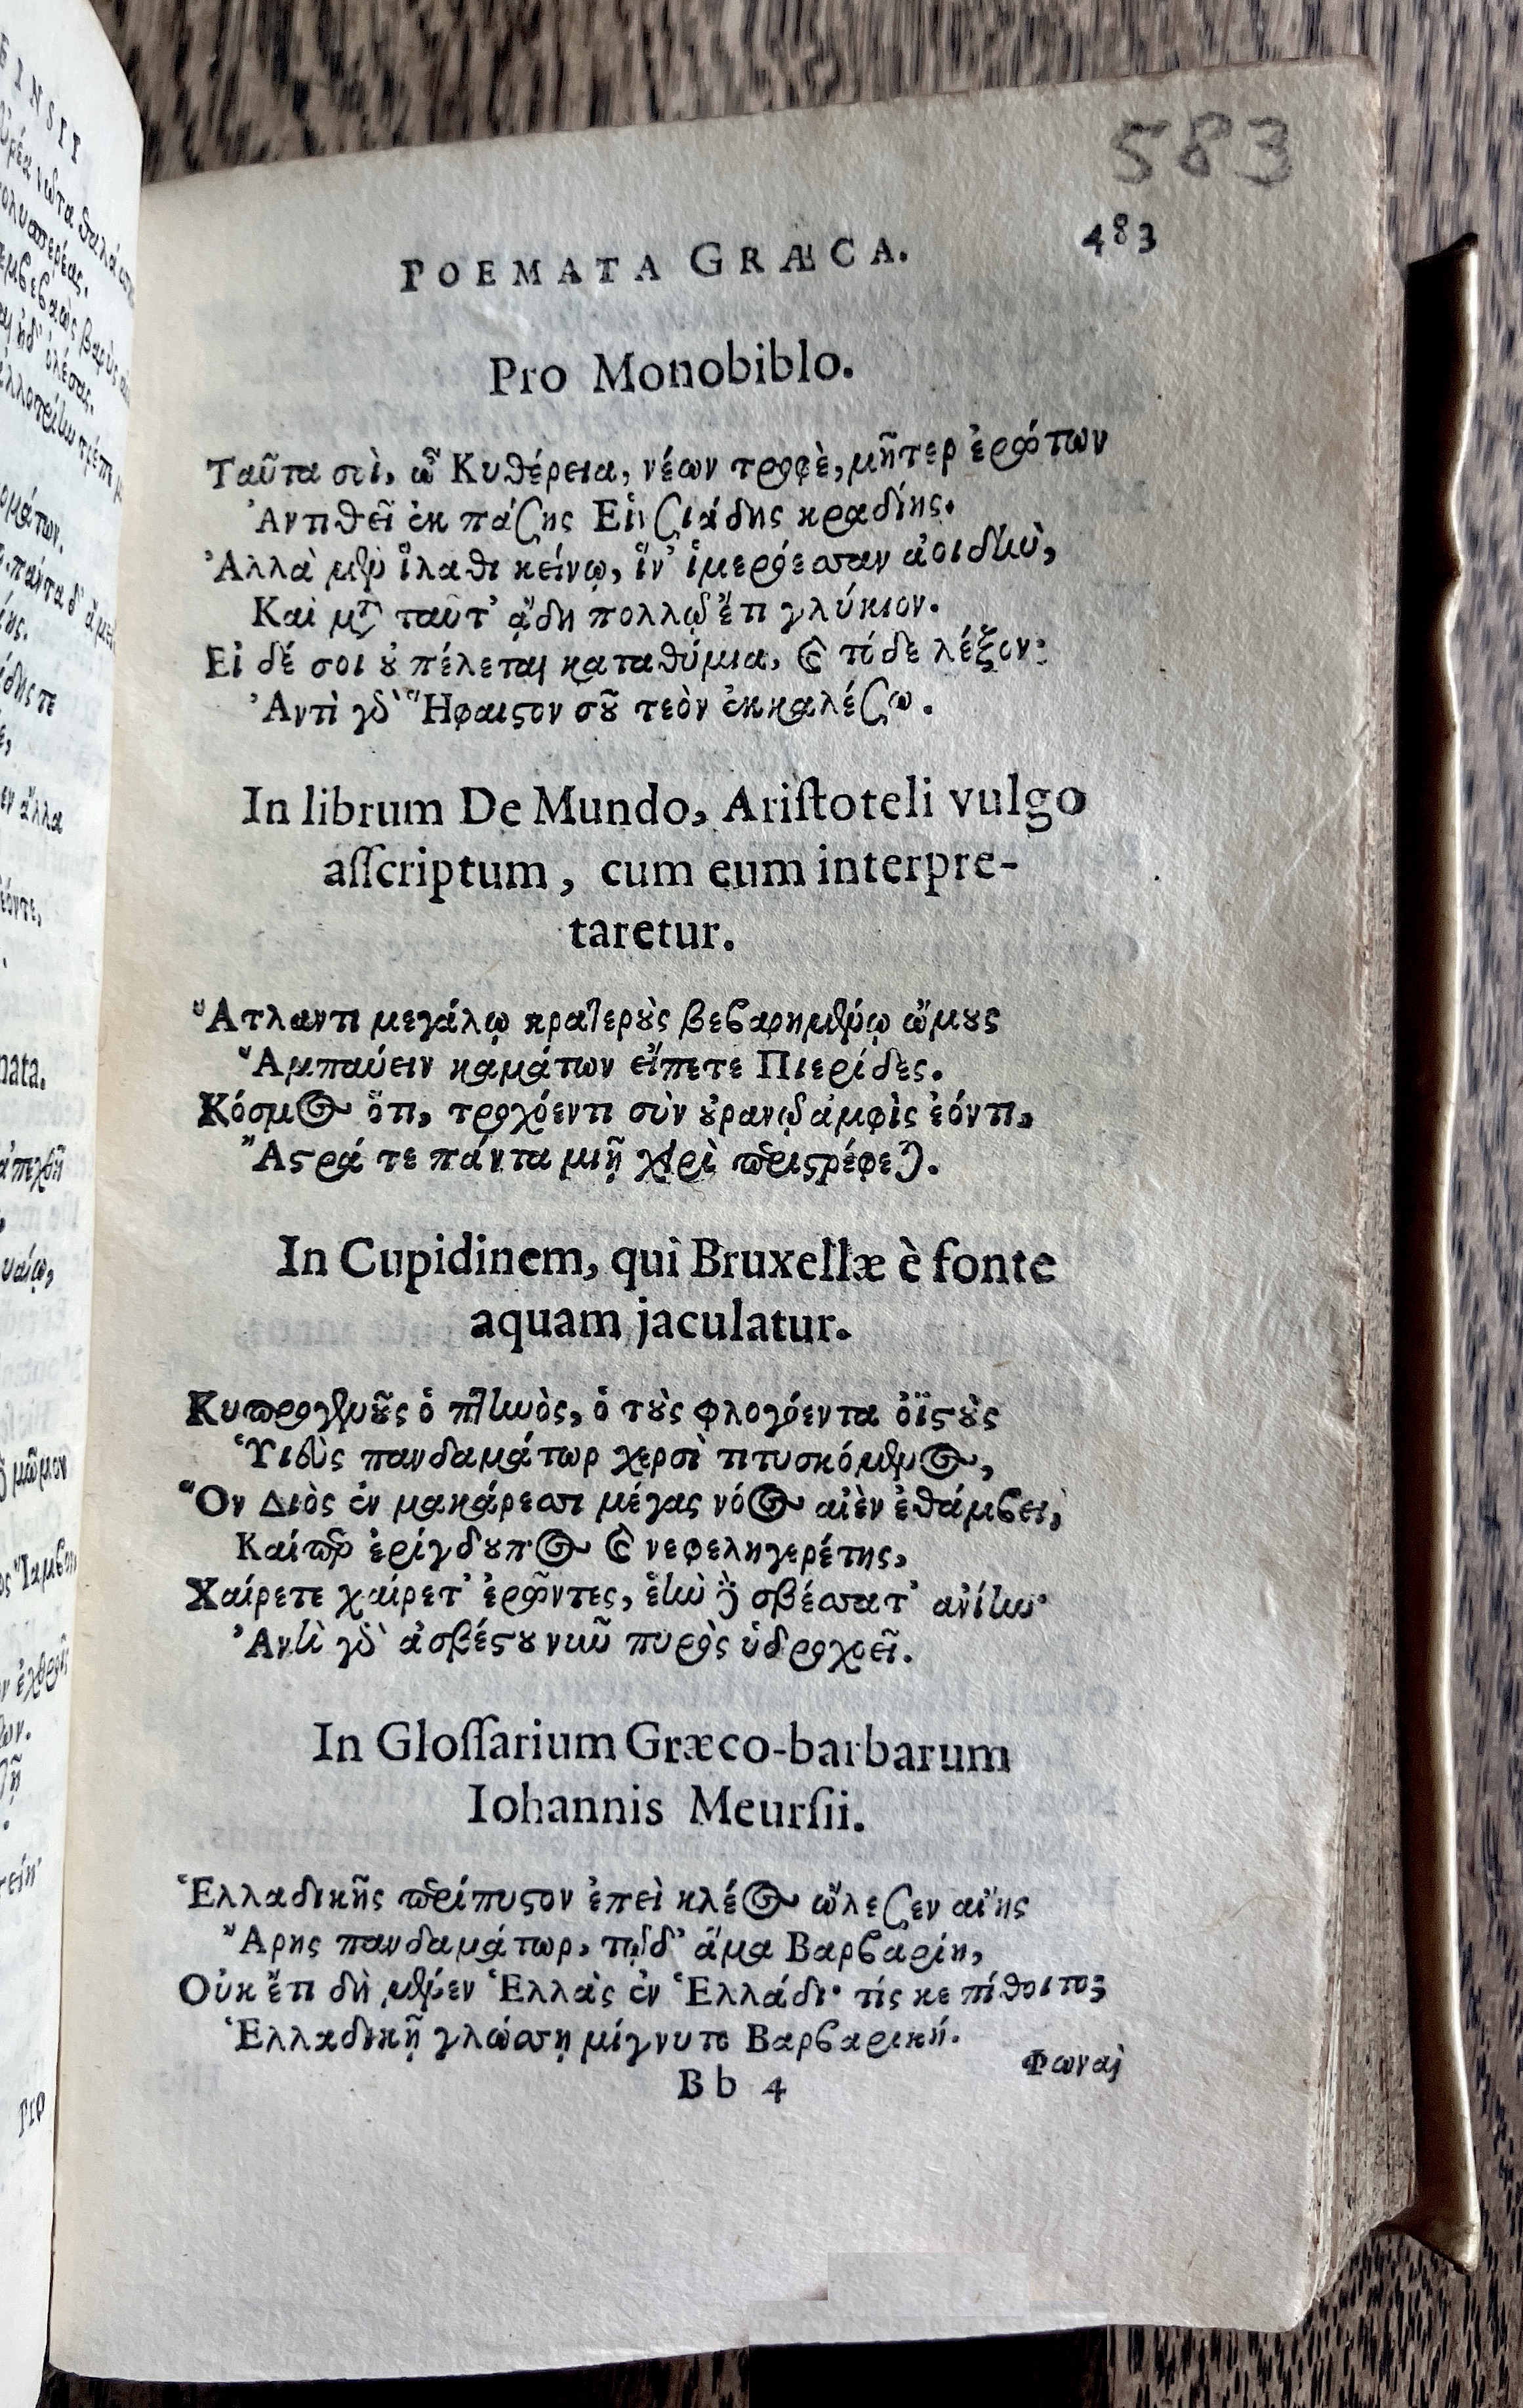 583
POEMATA GRÆCA. 483
Pro Monobiblo.
Ταῦτα σοὶ, ὦ Κυθέρεια, νέων τροφὲ, μῆτερ ἐρώτων
Ἀντιθεῖ ἐκ πάσης Εἱνσιάδης κραδίης.
Ἀλλὰ μὲν ἵλαθι κείνῳ, ἵν' ἱμερόεσσαν ἀοιδὴν,
Καὶ μετὰ ταῦτ' ᾄδη πολλῷ ἔτι γλύκιον.
Εἰ δέ σοι οὐ πέλεται καταθύμια, καὶ τόδε λέξον:
Ἀντὶ γὰρ Ἥφαιστον σοῦ τεὸν ἐκκαλέσω.
In librum De Mundo, Aristoteli vulgo
asscriptum, cum eum interpre-
taretur.
Ἄτλαντι μεγάλῳ κρατεροὺς βεβαρημένῳ ὤμους
Ἀμπαύειν καμάτων εἴπετε Πιερίδες.
Κόσμος ὅτι, τροχόεντι σὺν οὐρανῷ ἀμφὶς ἐόντι,
Ἄστρά τε πάντα μιῇ χειρὶ περιστρέφεται.
In Cupidinem, qui Bruxellæ è fonte
aquam jaculatur.
Κυπρογενοῦς ὁ πτηνὸς, ὁ τοὺς φλογόεντα ὀϊστοὺς
Ὑιεὺς πανδαμάτωρ χερσὶ τιτυσκόμενος,
Ὃν Διὸς ἐν μακάρεσσι μέγας νόος αἰὲν ἐθάμβει,
Καίπερ ἐρίγδουπος καὶ νεφεληγερέτης,
Χαίρετε χαίρετ' ἐρῶντες, ἑὴν δὲ σβέσσατ' ἀνίην·
Ἀντὶ γὰρ ἀσβέστου νῦν πυρὸς ὑδροχοεῖ.
In Glossarium Græco-barbarum
Iohannis Meursii.
Ἑλλαδικῆς περίπυστον ἐπεὶ κλέος ὤλεσεν αἴης
Ἄρης πανδαμάτωρ, τῷδ' ἅμα Βαρβαρίη,
Οὐκ ἔτι δὴ μένεν Ἑλλὰς ἐν Ἑλλάδι· τίς κε πίθοιτο;
Ἑλλαδικῇ γλώσσῃ μίγνυτο Βαρβαρική.
Bb 4 Φωναὶ